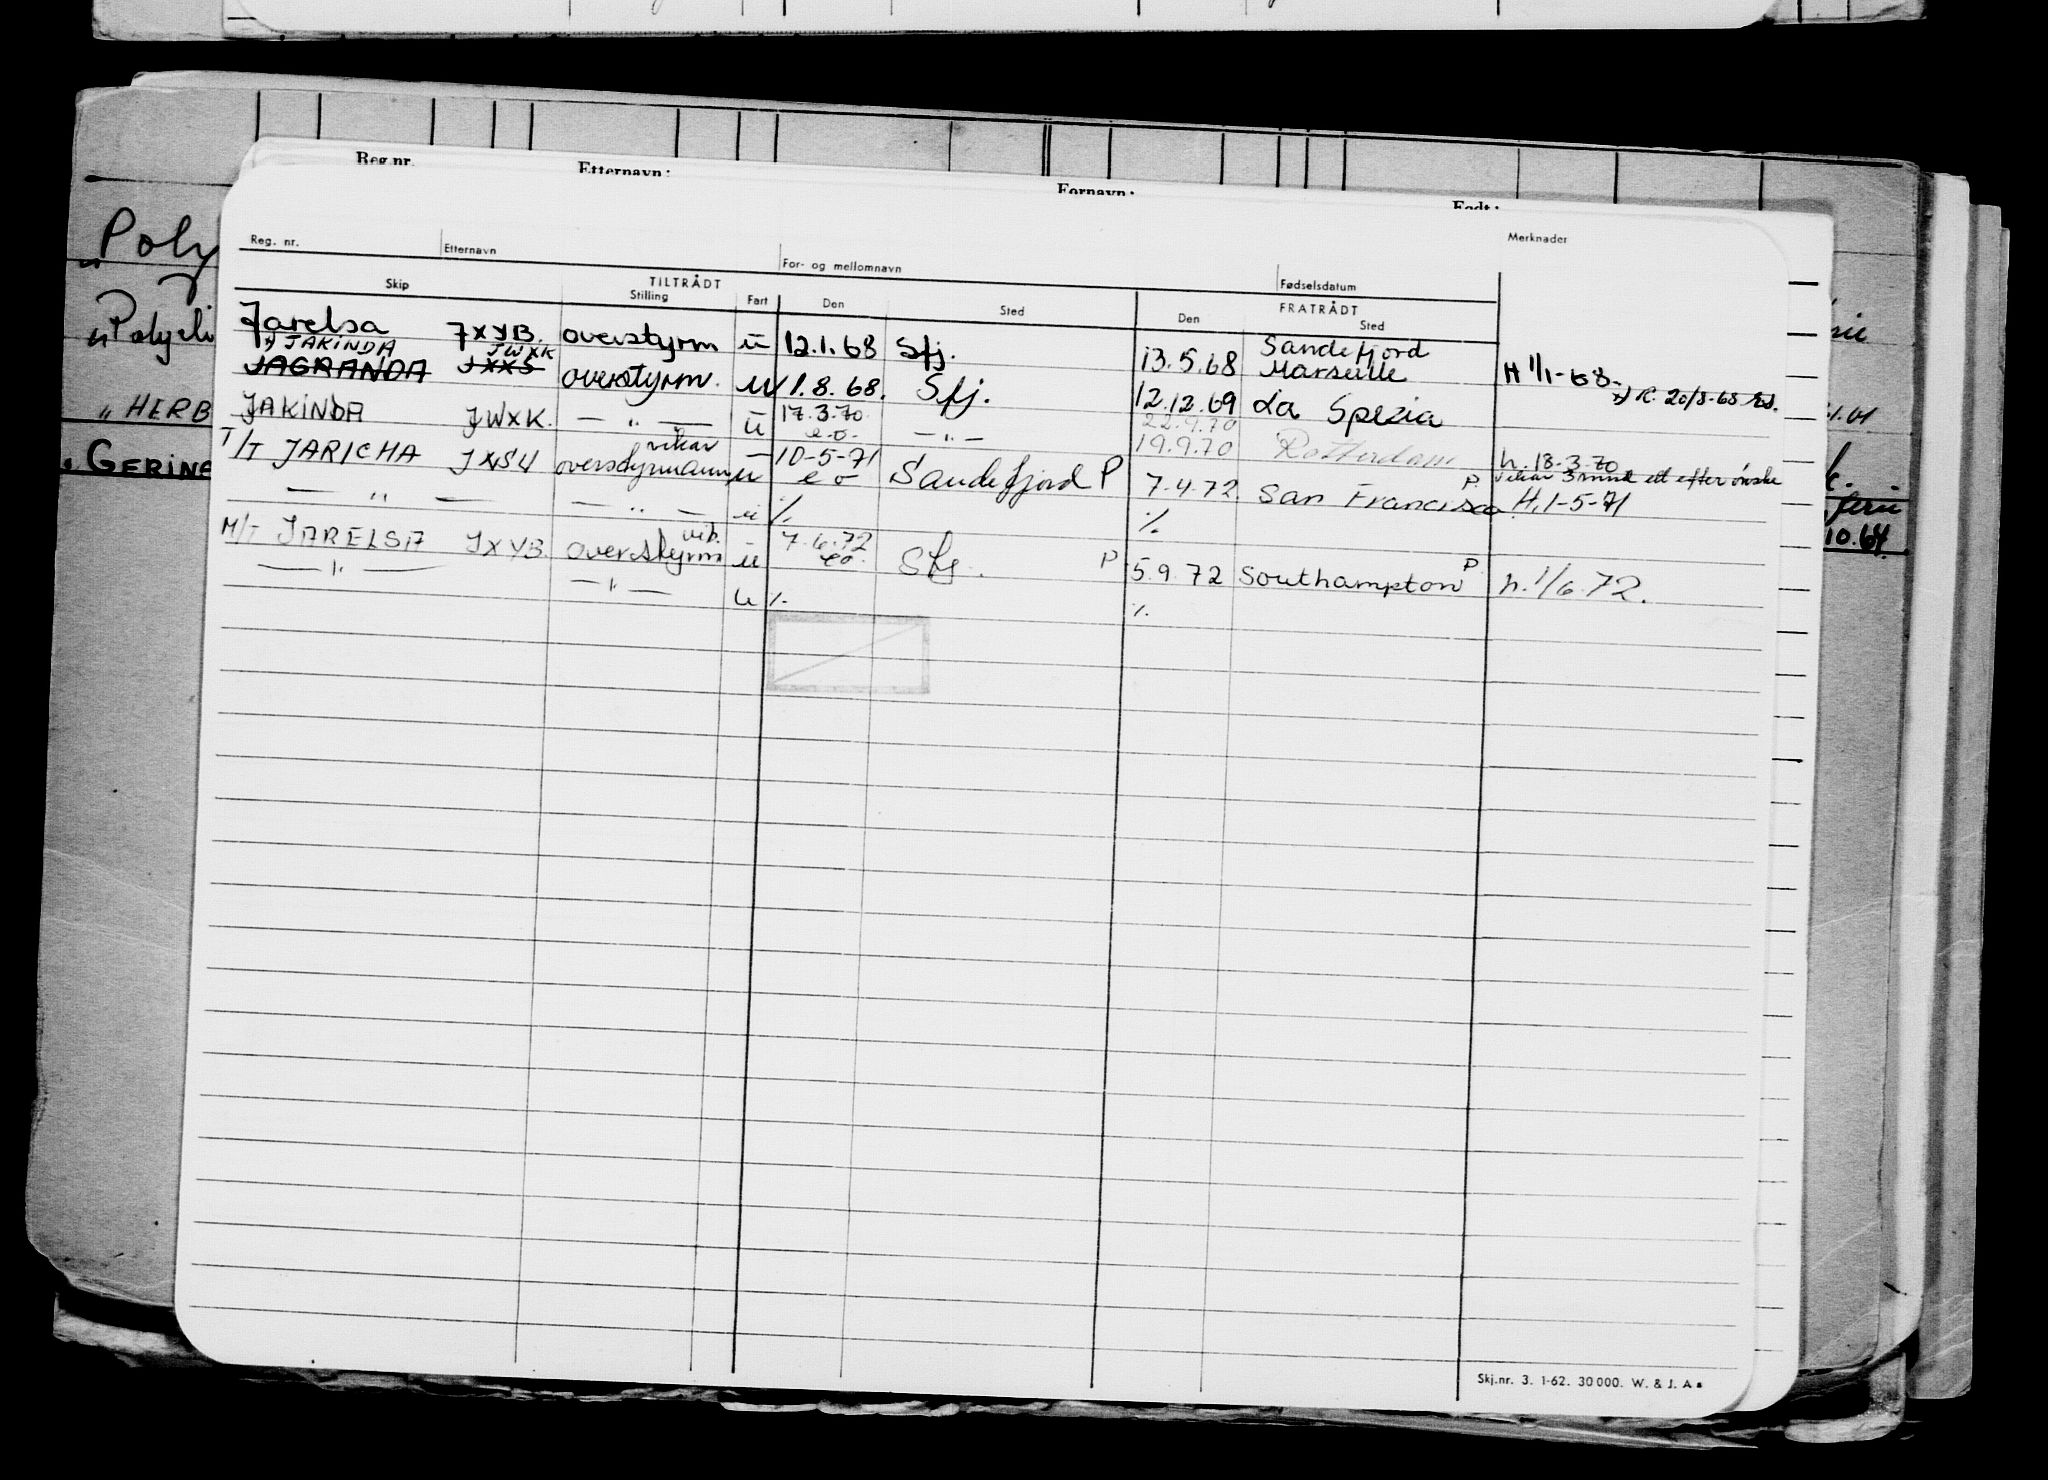 Reg.nr. Etternavn: Fornavn: Født:
Reg. nr. Etternavn For- og mellomnavn Fødselsdatum Merknader
TILTRÅDT FRATRÅDT
Skip Stilling Fart Den Sted Den Sted
Jarelsa JXYB. overstyrm u 12.1.68 Sfj. 13.5.68 Sandefjord H 1/1-68.
x) JAKINDA JWXK Marseille
JAGRANDA JXXS overstyrm. u 1.8.68. Sfj. 12.12.69 La Spezia x) R. 20/8-68
JAKINDA JWXK. — " — u 17.3.70 e.o. — " — 22.9.70 19.9.70 Rotterdam h. 18-3-70
T/T JARICHA JXSU overstyrmann vikar u 10-5-71 e o Sandefjord P 7.4.72 San Francisco P. vikar 3 mnd etter ønske
— " — — " — u % % H. 1-5-71
M/T JARELSA JXYB. overstyrm vik. u 7.6.72 eo. Sfj. P 5.9.72 Southampton P h. 1/6.72.
— " — — " — u % %
Poly
" HERB
" GERINE
10.64.
Skj.nr. 3. 1-62. 30 000. W. & J. A s